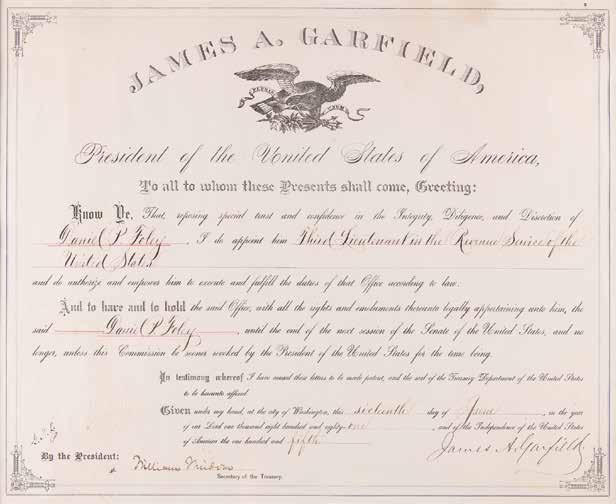 JAMES A. GARFIELD,
President of the United States of America,
To all to whom these Presents shall come, Greeting:
Know Ye, That, reposing special trust and confidence in the Integrity, Diligence, and Discretion of
Daniel P. Foley, I do appoint him Third Lieutenant in the Revenue Service of the
United States
and do authorize and empower him to execute and fulfill the duties of that Office according to law.
And to have and to hold the said Office, with all the rights and emoluments thereunto legally appertaining unto him, the
said Daniel P. Foley, until the end of the next session of the Senate of the United States, and no
longer, unless this Commission be sooner revoked by the President of the United States for the time being.
In testimony whereof I have caused these letters to be made patent, and the seal of the Treasury Department of the United States
to be hereunto affixed
Given under my hand, at the city of Washington, this sixteenth day of June, in the year
of our Lord one thousand eight hundred and eighty-one, and of the Independence of the United States
of America the one hundred and fifth.
James A. Garfield
By the President:
William Windom
Secretary of the Treasury.